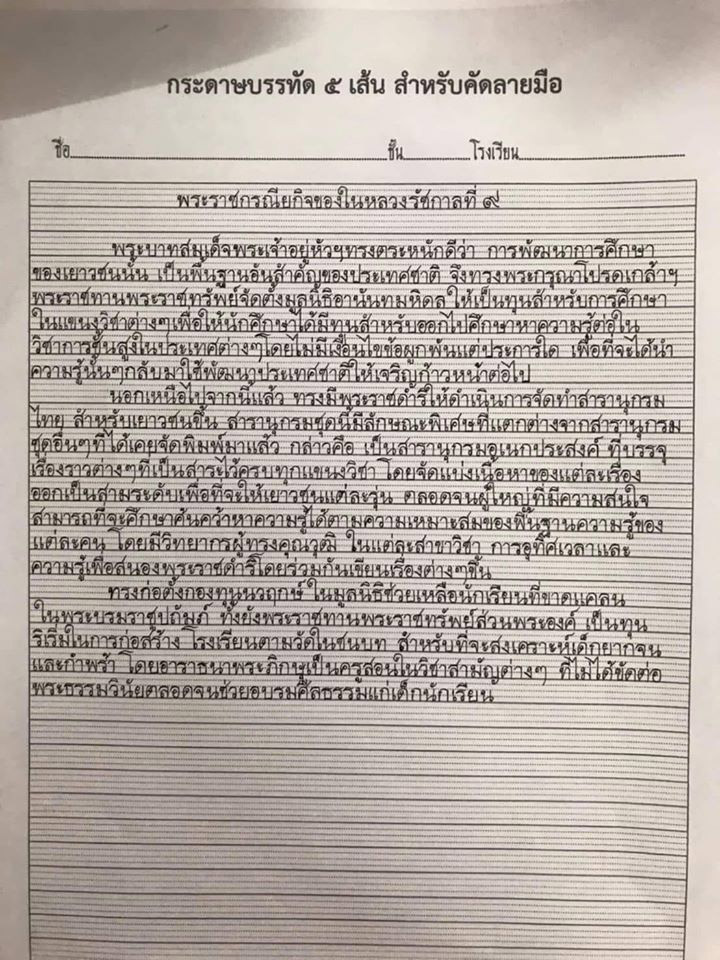 กระดาษบรรทัด ๕ เส้น สำหรับคัดลายมือ
ชื่อ ชั้น โรงเรียน
พระราชกรณียกิจของในหลวงรัชกาลที่ ๙
พระบาทสมเด็จพระเจ้าอยู่หัวฯทรงตระหนักดีว่า การพัฒนาการศึกษา
ของเยาวชนนั้น เป็นพื้นฐานอันสำคัญของประเทศชาติ จึงทรงพระกรุณาโปรดเกล้าฯ
พระราชทานพระราชทรัพย์จัดตั้งมูลนิธิอานันทมหิดล ให้เป็นทุนสำหรับการศึกษา
ในแขนงวิชาต่างๆเพื่อให้นักศึกษาได้มีทุนสำหรับออกไปศึกษาหาความรู้ต่อใน
วิชาการชั้นสูงในประเทศต่างๆโดยไม่มีเงื่อนไขข้อผูกพันแต่ประการใด เพื่อที่จะได้นำ
ความรู้นั้นๆกลับมาใช้พัฒนาประเทศชาติให้เจริญก้าวหน้าต่อไป
นอกเหนือไปจากนี้แล้ว ทรงมีพระราชดำริให้ดำเนินการจัดทำสารานุกรม
ไทย สำหรับเยาวชนขึ้น สารานุกรมชุดนี้มีลักษณะพิเศษที่แตกต่างจากสารานุกรม
ชุดอื่นๆที่ได้เคยจัดพิมพ์มาแล้ว กล่าวคือ เป็นสารานุกรมอเนกประสงค์ ที่บรรจุ
เรื่องราวต่างๆที่เป็นสาระไว้ครบทุกแขนงวิชา โดยจัดแบ่งเนื้อหาของแต่ละเรื่อง
ออกเป็นสามระดับเพื่อที่จะให้เยาวชนแต่ละรุ่น ตลอดจนผู้ใหญ่ที่มีความสนใจ
สามารถที่จะศึกษาค้นคว้าหาความรู้ได้ตามความเหมาะสมของพื้นฐานความรู้ของ
แต่ละคน โดยมีวิทยากรผู้ทรงคุณวุฒิ ในแต่ละสาขาวิชา การอุทิศเวลาและ
ความรู้เพื่อสนองพระราชดำริโดยร่วมกันเขียนเรื่องต่างๆขึ้น
ทรงก่อตั้งกองทุนนวฤกษ์ ในมูลนิธิช่วยเหลือนักเรียนที่ขาดแคลน
ในพระบรมราชูปถัมภ์ ทั้งยังพระราชทานพระราชทรัพย์ส่วนพระองค์ เป็นทุน
ริเริ่มในการก่อสร้าง โรงเรียนตามวัดในชนบท สำหรับที่จะสงเคราะห์เด็กยากจน
และกำพร้า โดยอาราธนาพระภิกษุเป็นครูสอนในวิชาสามัญต่างๆ ที่ไม่ได้ขัดต่อ
พระธรรมวินัยตลอดจนช่วยอบรมศีลธรรมแก่เด็กนักเรียน